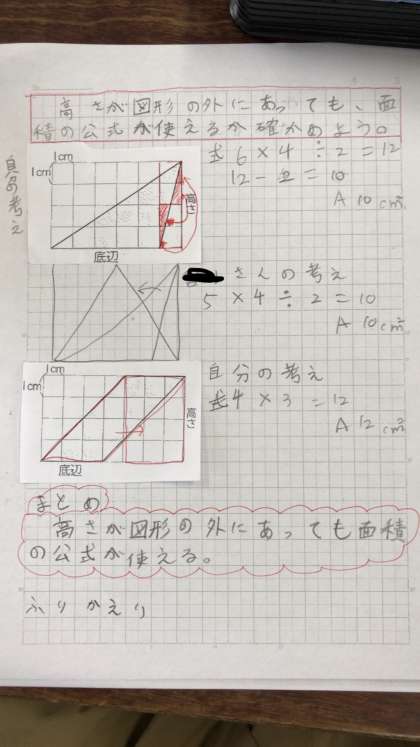 高さが図形の外にあっても、面
積の公式が使えるか確かめよう。
自分の考え
1cm
1cm
高さ
底辺
式 6×4÷2=12
12-2=10
A 10cm²
さんの考え
5×4÷2=10
A 10cm²
1cm
1cm
高さ
底辺
自分の考え
式4×3=12
A 12cm²
まとめ
高さが図形の外にあっても面積
の公式が使える。
ふりかえり